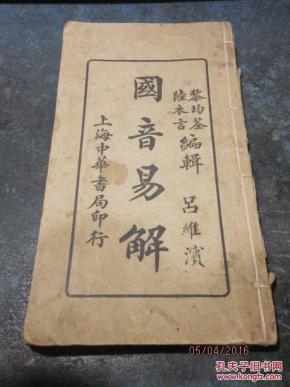 黎均荃
陸衣言
編輯
呂維濱
國音易解
上海中華書局印行
05/04/2016
孔夫子旧书网